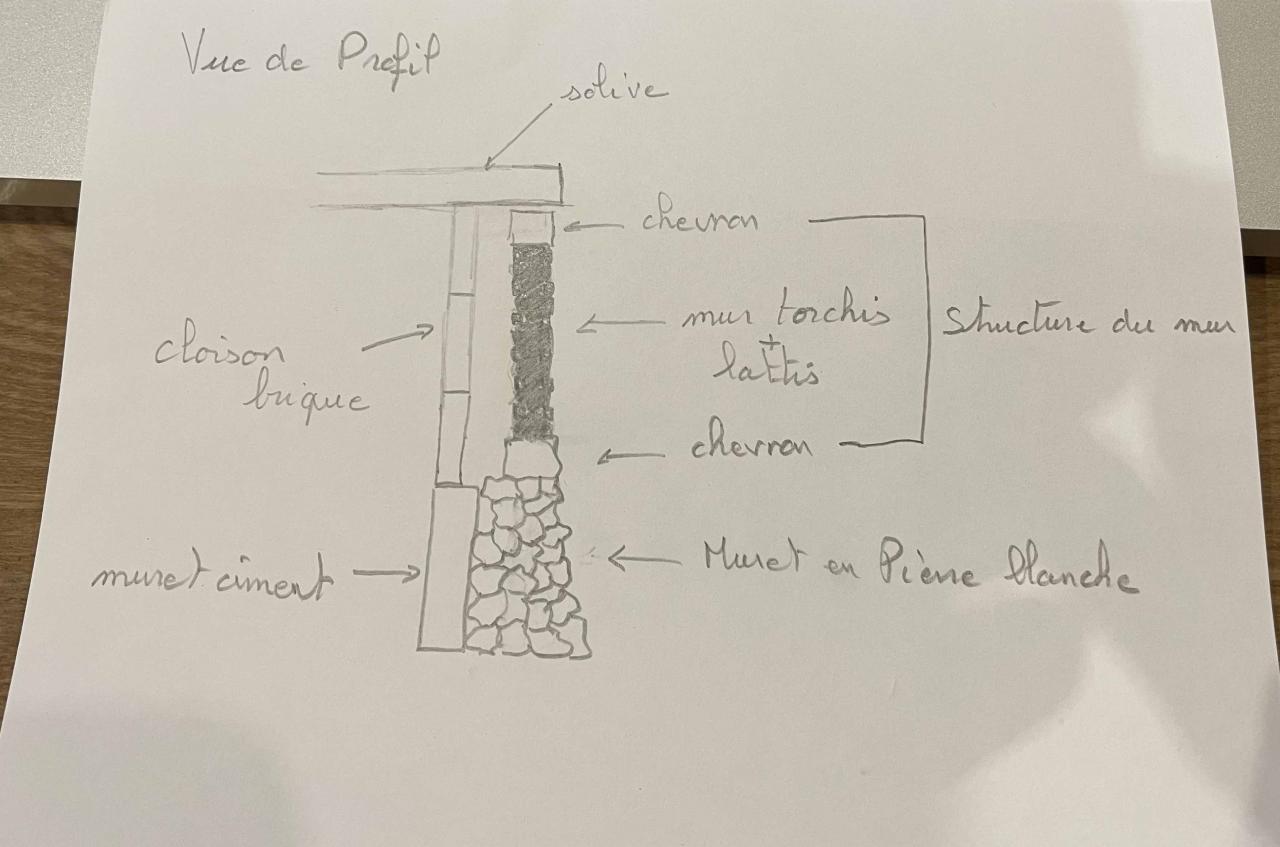 Vue de Profil
solive
chevron
mur torchis
+
lattis
Structure du mur
cloison
brique
chevron
muret ciment
Muret en Pierre blanche